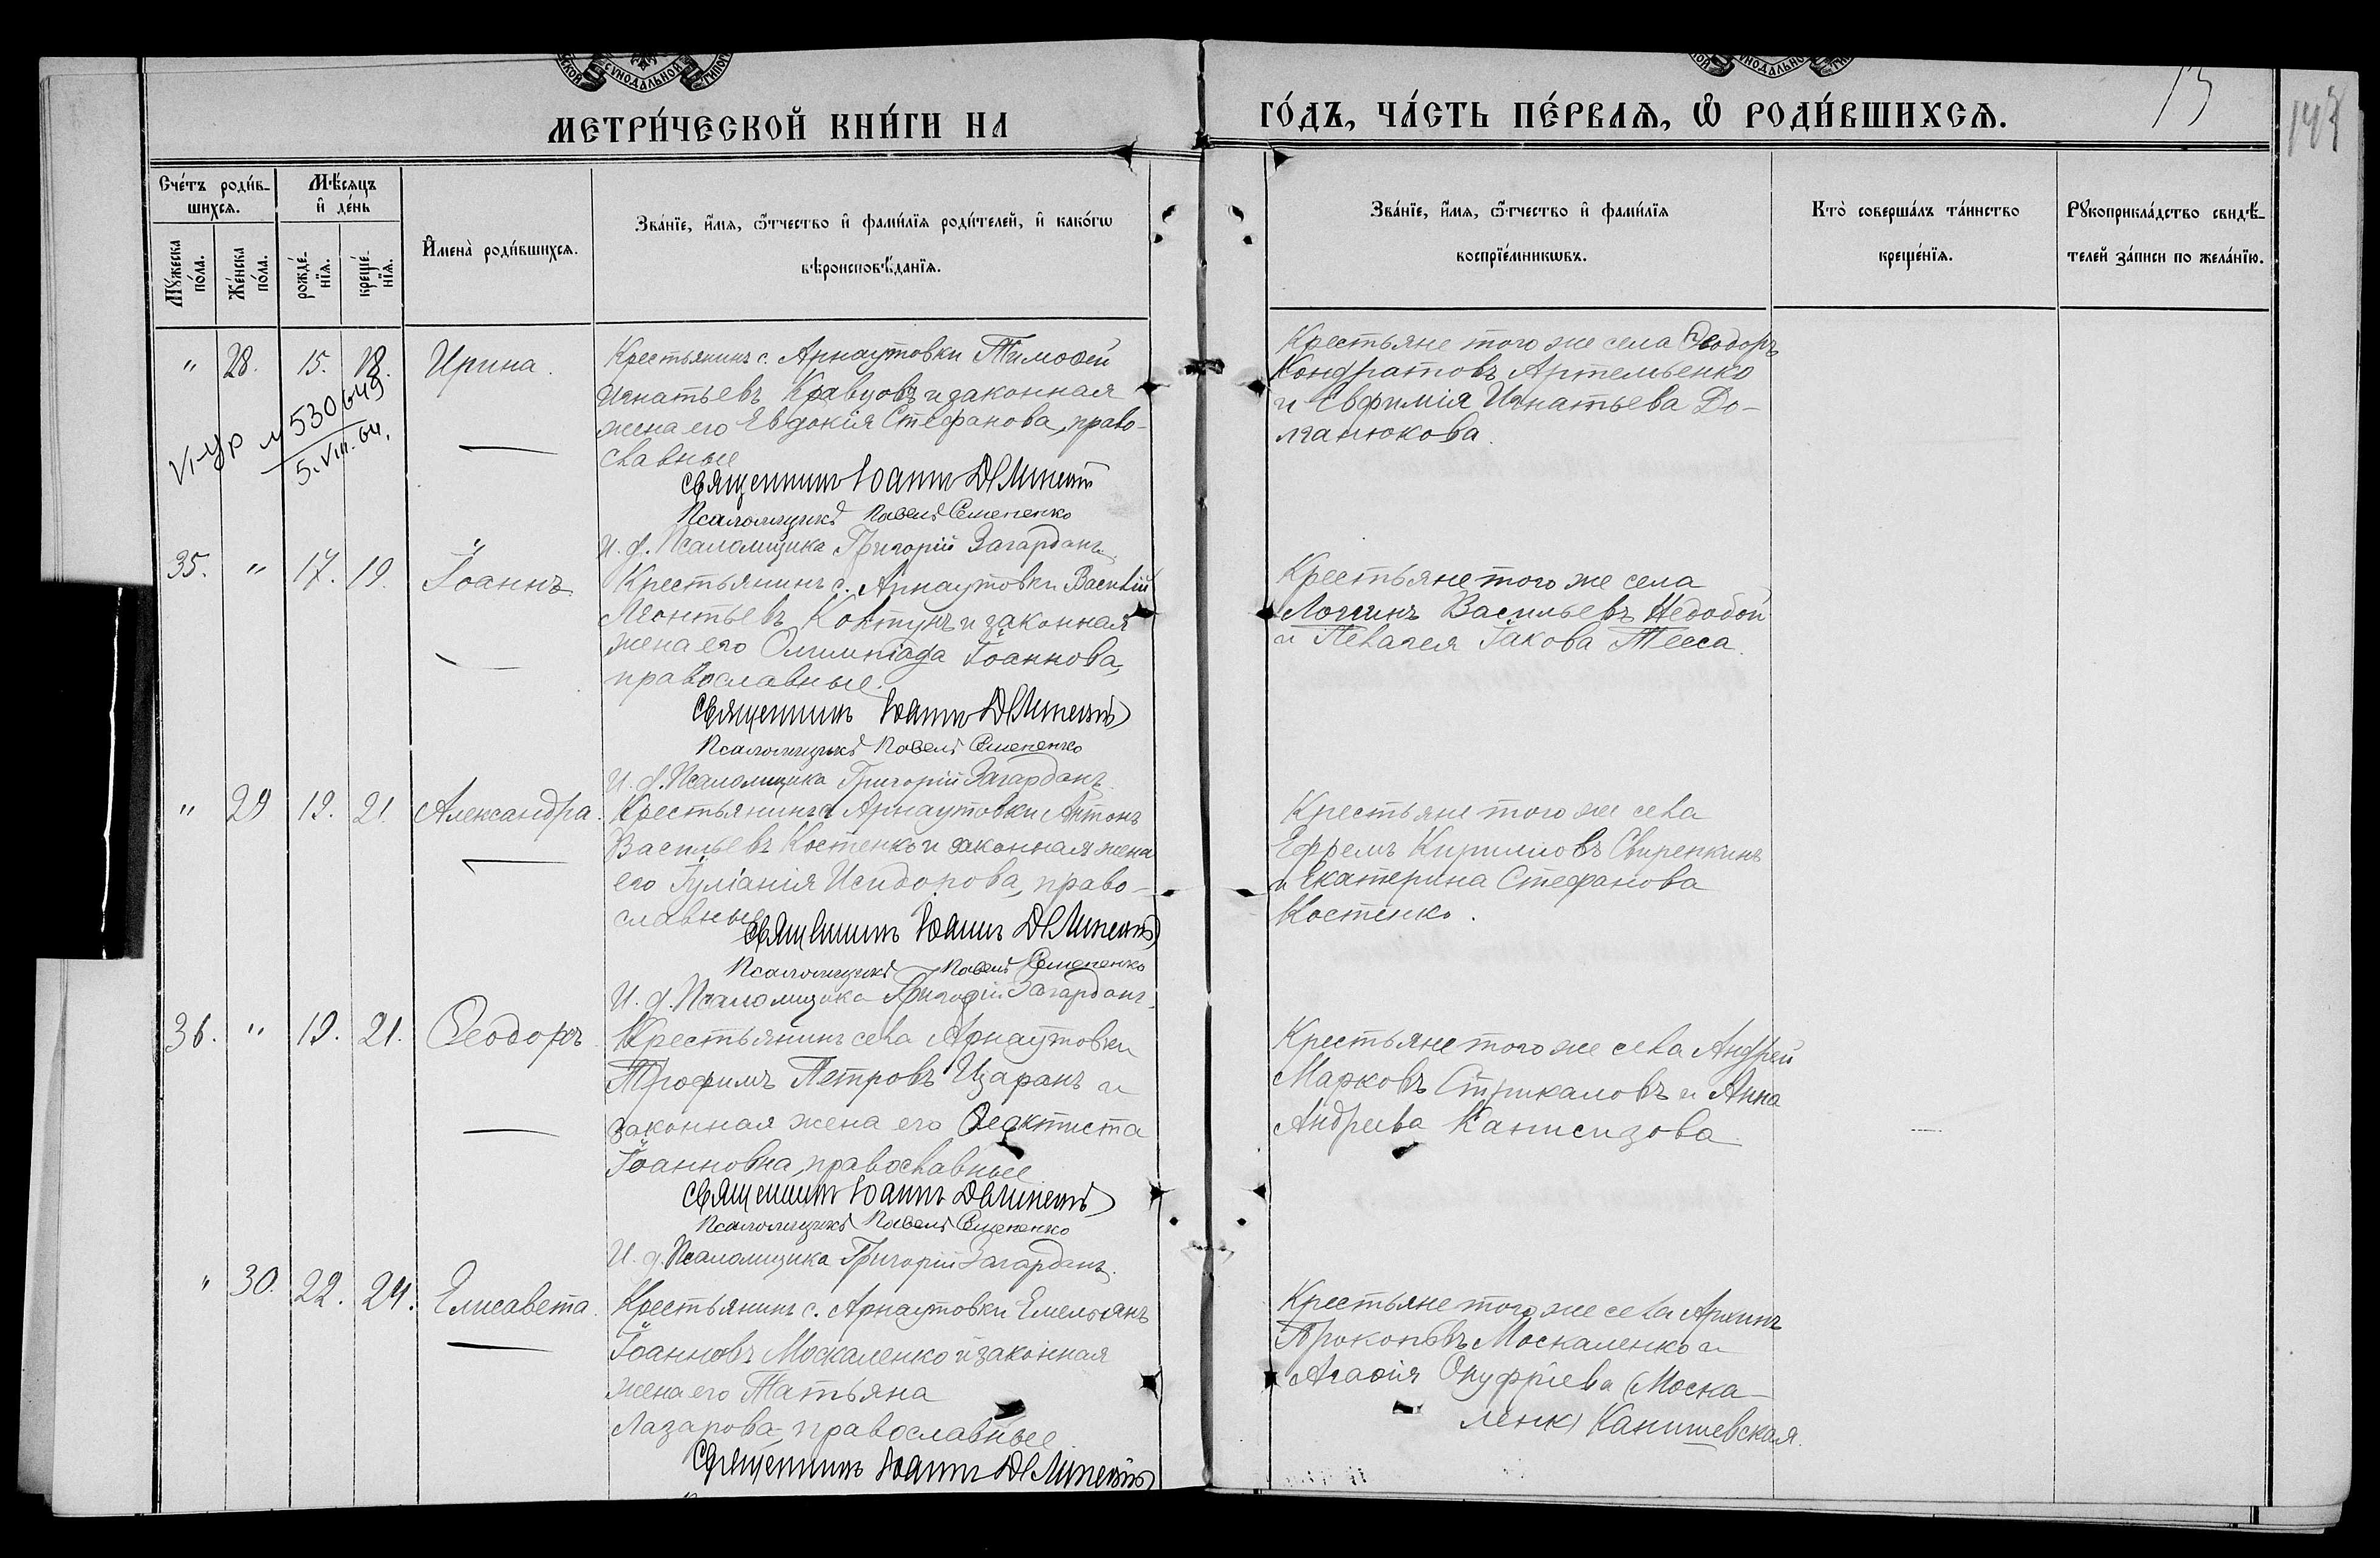 МЕТРИ́ЧЕСКОЙ КНИ́ГИ НА
ГО́ДЪ, ЧА́СТЬ ПЕ́РВАѦ, Ѡ҆ РОДИ́ВШИХСѦ.
13
Сче́тъ роди́в-
шихсѧ.
Мѣ́сѧцъ
и҆ де́нь
Мꙋ́жеска
по́ла.
Же́нска
по́ла.
рожде́-
нїѧ.
креще́-
нїѧ.
И҆мена̀ роди́вшихсѧ.
Зва́нїе, и҆́мѧ, ѻ҆́тчество и҆ фами́лїѧ роди́телей, и҆ како́гѡ
вѣроисповѣ́данїѧ.
Зва́нїе, и҆́мѧ, ѻ҆́тчество и҆ фами́лїѧ
воспрїе́мникѡвъ.
Кто̀ соверша́лъ та́инство
креще́нїѧ.
Рꙋкоприкла́дство свидѣ́-
телей за́писи по жела́нїю.
" 28. 15. 18. Ирина.
Крестьянинъ с. Арнаутовки Тимофей
Игнатьевъ Кравцовъ и законная
жена его Евдокія Стефанова, право-
славные
Священникъ Іоаннъ
Псаломщикъ Павелъ Семененко
И. д. Псаломщика Григорій Загарданъ.
Крестьяне того же села Ѳеодоръ
Кондратовъ Артельенко
и Евфимія Игнатьева До-
манюкова.
VI-УР № 530649
5.VIII.64.
35. " 17. 19. Іоаннъ.
Крестьянинъ с. Арнаутовки Василій
Леонтьевъ Ковтунъ и законная
жена его Олимпіада Іоаннова,
православные.
Священникъ Іоаннъ
Псаломщикъ Павелъ Семененко
И. д. Псаломщика Григорій Загарданъ.
Крестьяне того же села
Логинъ Васильевъ Недобой
и Пелагея Іакова Тееса.
" 29 19. 21. Александра.
Крестьянинъ с Арнаутовки Антонъ
Васильевъ Костенко и законная жена
его Іуліанія Исидорова, право-
славные
Священникъ Іоаннъ
Псаломщикъ Павелъ Семененко
И. д. Псаломщика Григорій Загарданъ.
Крестьяне того же села
Ефремъ Кирилловъ Свиренкинъ
и Екатерина Стефанова
Костенко.
36. " 19. 21. Ѳеодоръ.
Крестьянинъ села Арнаутовки
Трофимъ Петровъ Царанъ и
законная жена его Ѳеоктиста
Іоанновна, православные.
Священникъ Іоаннъ
Псаломщикъ Павелъ Семененко
И. д. Псаломщика Григорій Загарданъ.
Крестьяне того же села Андрей
Марковъ Стрикаловъ и Анна
Андреева
" 30. 22. 24. Елисавета.
Крестьянинъ с. Арнаутовки Емельянъ
Іоанновъ Москаленко и законная
жена его Татьяна
Лазарова, православные.
Священникъ Іоаннъ
Крестьяне того же села Архипъ
Прокопьевъ Москаленко и
Агафія Онуфріева (Моска-
ленко) Канишевская.